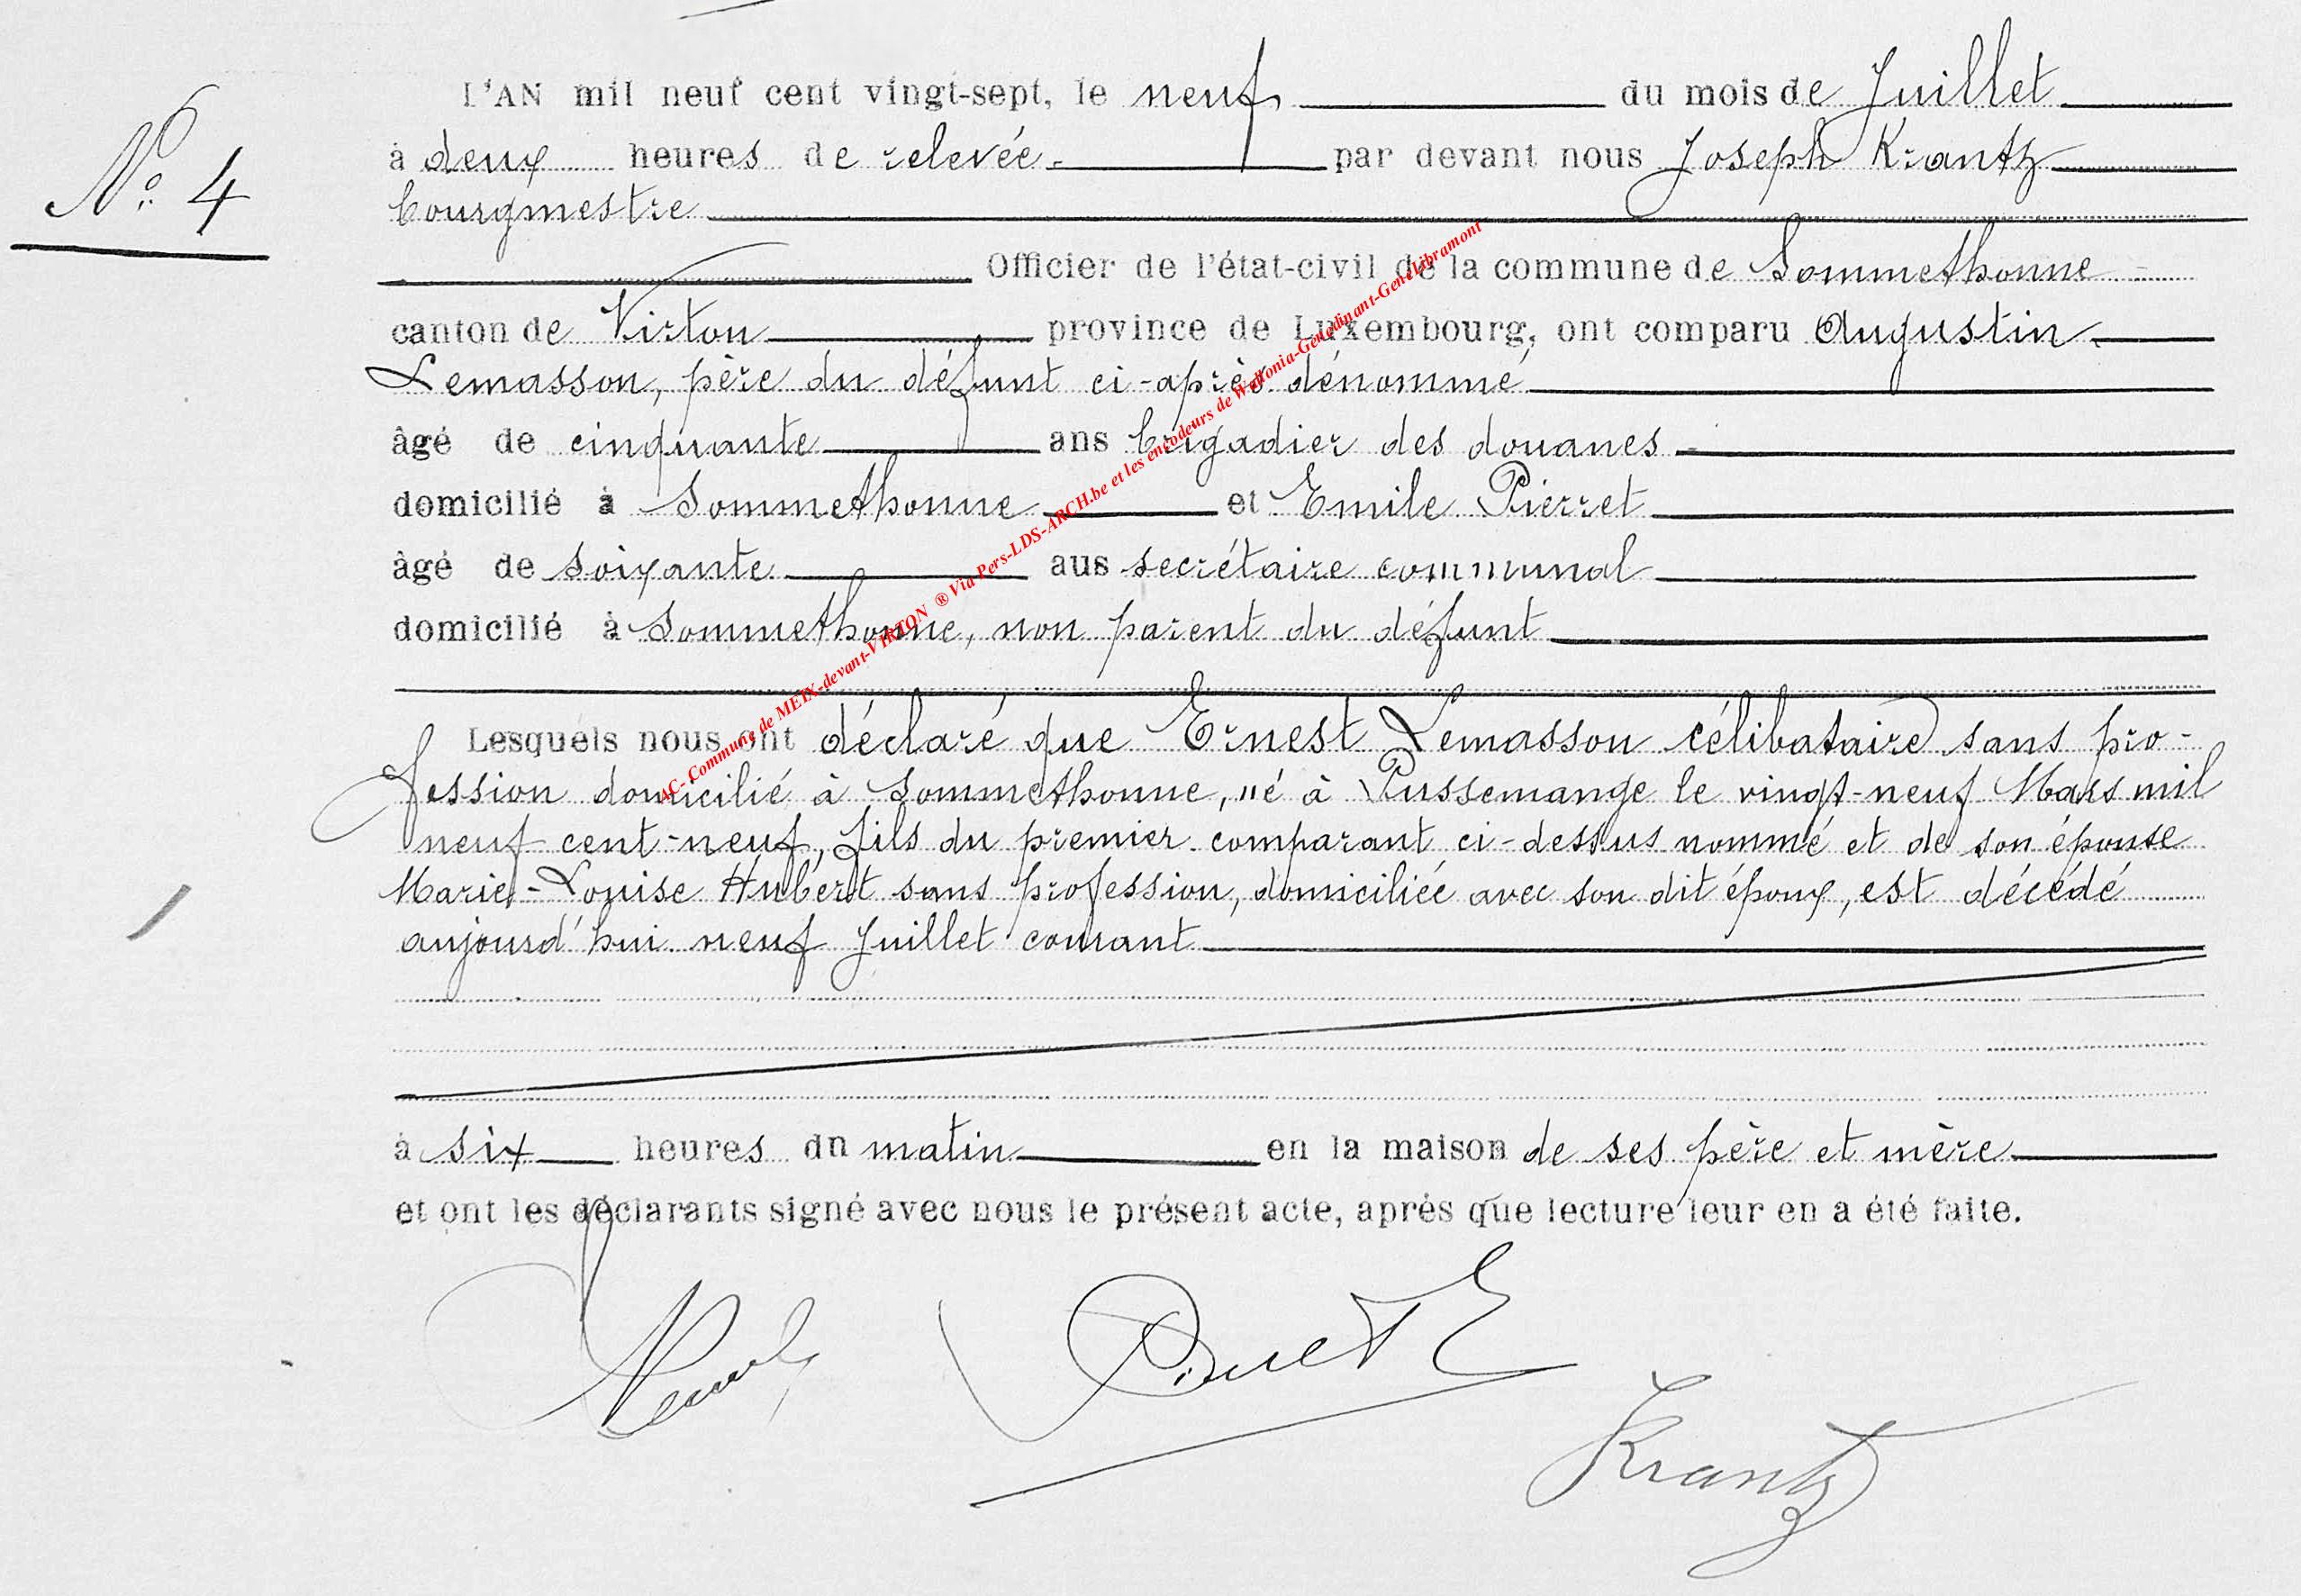 N° 4
L'AN mil neuf cent vingt-sept, le neuf du mois de Juillet
à deux heures de relevée par devant nous Joseph Krantz
bourgmestre
Officier de l'état-civil de la commune de Sommethonne
canton de Virton province de Luxembourg, ont comparu Augustin
Lemasson, père du défunt ci-après dénommé
âgé de cinquante ans brigadier des douanes
domicilié à Sommethonne et Emile Pierret
âgé de soixante aus secrétaire communal
domicilié à Sommethonne, non parent du défunt
Lesquels nous ont déclaré que Ernest Lemasson célibataire sans pro-
fession domicilié à Sommethonne, né à Pussemange le vingt-neuf Mars mil
neuf cent-neuf, fils du premier comparant ci-dessus nommé et de son épouse
Marie-Louise Hubert sans profession, domiciliée avec son dit époux, est décédé
aujourd'hui neuf Juillet courant
à six heures du matin en la maison de ses père et mère
et ont les déclarants signé avec nous le présent acte, après que lecture leur en a été faite.
Pierret E
Krantz
AC- Commune de MEIX-devant-VIRTON ® Via Pers-LDS-ARCH.be et les encodeurs de Wallonia-Genedinant-GeneLibramont